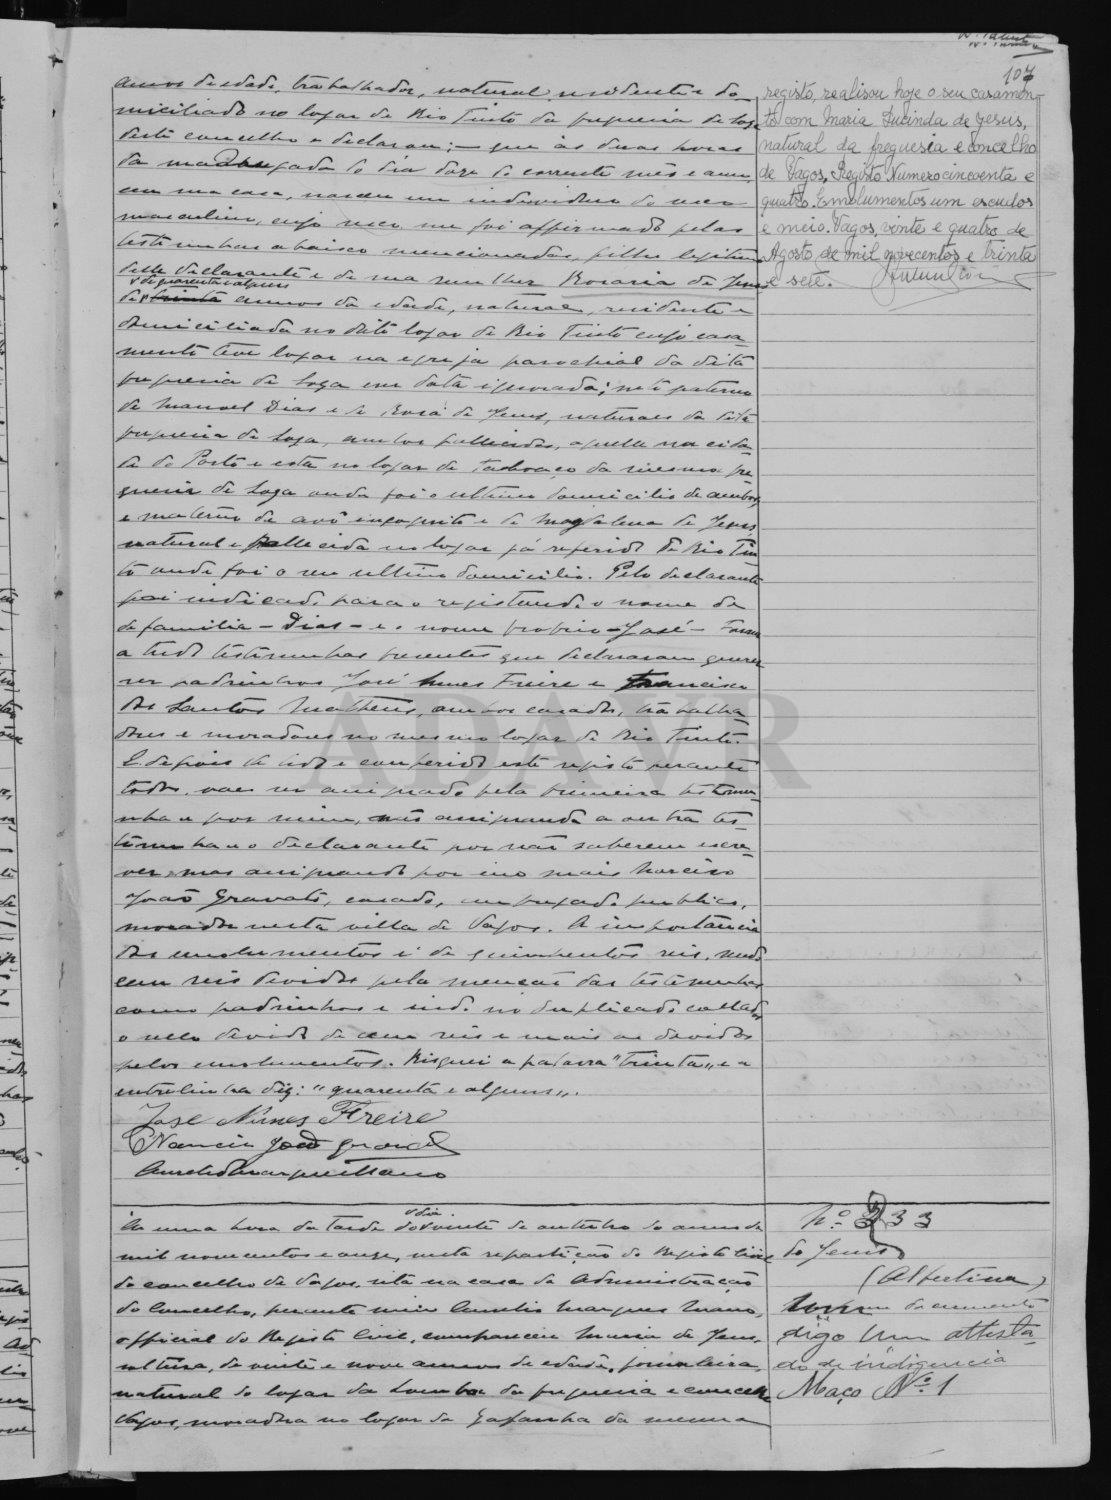 107
annos de edade, trabalhador, natural, residente e do-
miciliado no logar de Rio Tinto da freguesia de Soza
deste concelho e declarou: — que ás duas horas
da madrugada do dia doze do corrente mês e anno,
em sua casa, nasceu um individuo do sexo
masculino, cujo sexo me foi affirmado pelas
testemunhas abaixo mencionadas, filho legitimo
delle declarante e de sua mulher Rosaria de Jesus
de quarenta e alguns
de trinta annos de edade, natural, residente e
domiciliada no dito logar de Rio Tinto cujo casa-
mento teve logar na egreja parochial da dita
freguesia de Soza em data ignorada; neto paterno
de Manoel Dias e de Rosa de Jesus, naturaes da dita
freguesia de Soza, ambos fallecidos, aquelle na cida-
de do Porto e esta no logar de Taboaço da mesma fre-
guesia de Soza onde foi o ultimo domicilio de ambos,
e materno de avô incognito e de Magdalena de Jesus,
natural e fallecida no logar já referido de Rio Tin-
to onde foi o seu ultimo domicilio. Pelo declarante
foi indicado para o registando o nome de
de familia - Dias - e o nome proprio - José - Foram
a tudo testemunhas presentes que declararam querer
ser padrinhos José Nunes Freire e Francisco
dos Santos Matheus, ambos casados, trabalha-
dores e moradores no mesmo logar de Rio Tinto.
E depois de lido e conferido este registo perante
todos, vae ser assignado pela primeira testemu-
nha e por mim, não assignando a outra tes-
temunha e o declarante por não saberem escre-
ver, mas assignando por isso mais Narciso
João Gravato, casado, empregado publico,
morador nesta villa de Vagos. A importancia
dos emolumentos é de quinhentos reis, sendo
cem reis devidos pela menção das testemunhas
como padrinhos e indo no duplicado collado
o sello devido de cem reis e mais os devidos
pelos emolumentos. Risquei a palavra "trinta" e a
entrelinha diz: "quarenta e alguns".
José Nunes Freire
Narciso João Gravato
Aurelio Marques Mano
registo, realisou hoje o seu casamen-
to com Maria Lucinda de Jesus,
natural da freguesia e concelho
de Vagos, Registo Numero cincoenta e
quatro. Emolumentos um escudos
e meio. Vagos, vinte e quatro de
Agosto de mil novecentos e trinta
e sete.
dia
Á uma hora da tarde do vinte de outubro do anno de
mil novecentos e onze, nesta repartição do Registo Civil
do concelho de Vagos, sita na casa da Administração
do Concelho, perante mim Aurelio Marques Mano,
official do Registo Civil, compareceu Maria de Jesus,
solteira, de vinte e nove annos de edade, jornaleira,
natural do logar da Lomba da freguesia e concelho
Vagos, moradora no logar da Gafanha da mesma
Nº 233
de Jesus
(Albertina)
um documento
digo Um attesta-
do de indigencia
Maço Nº 1
ADAVR